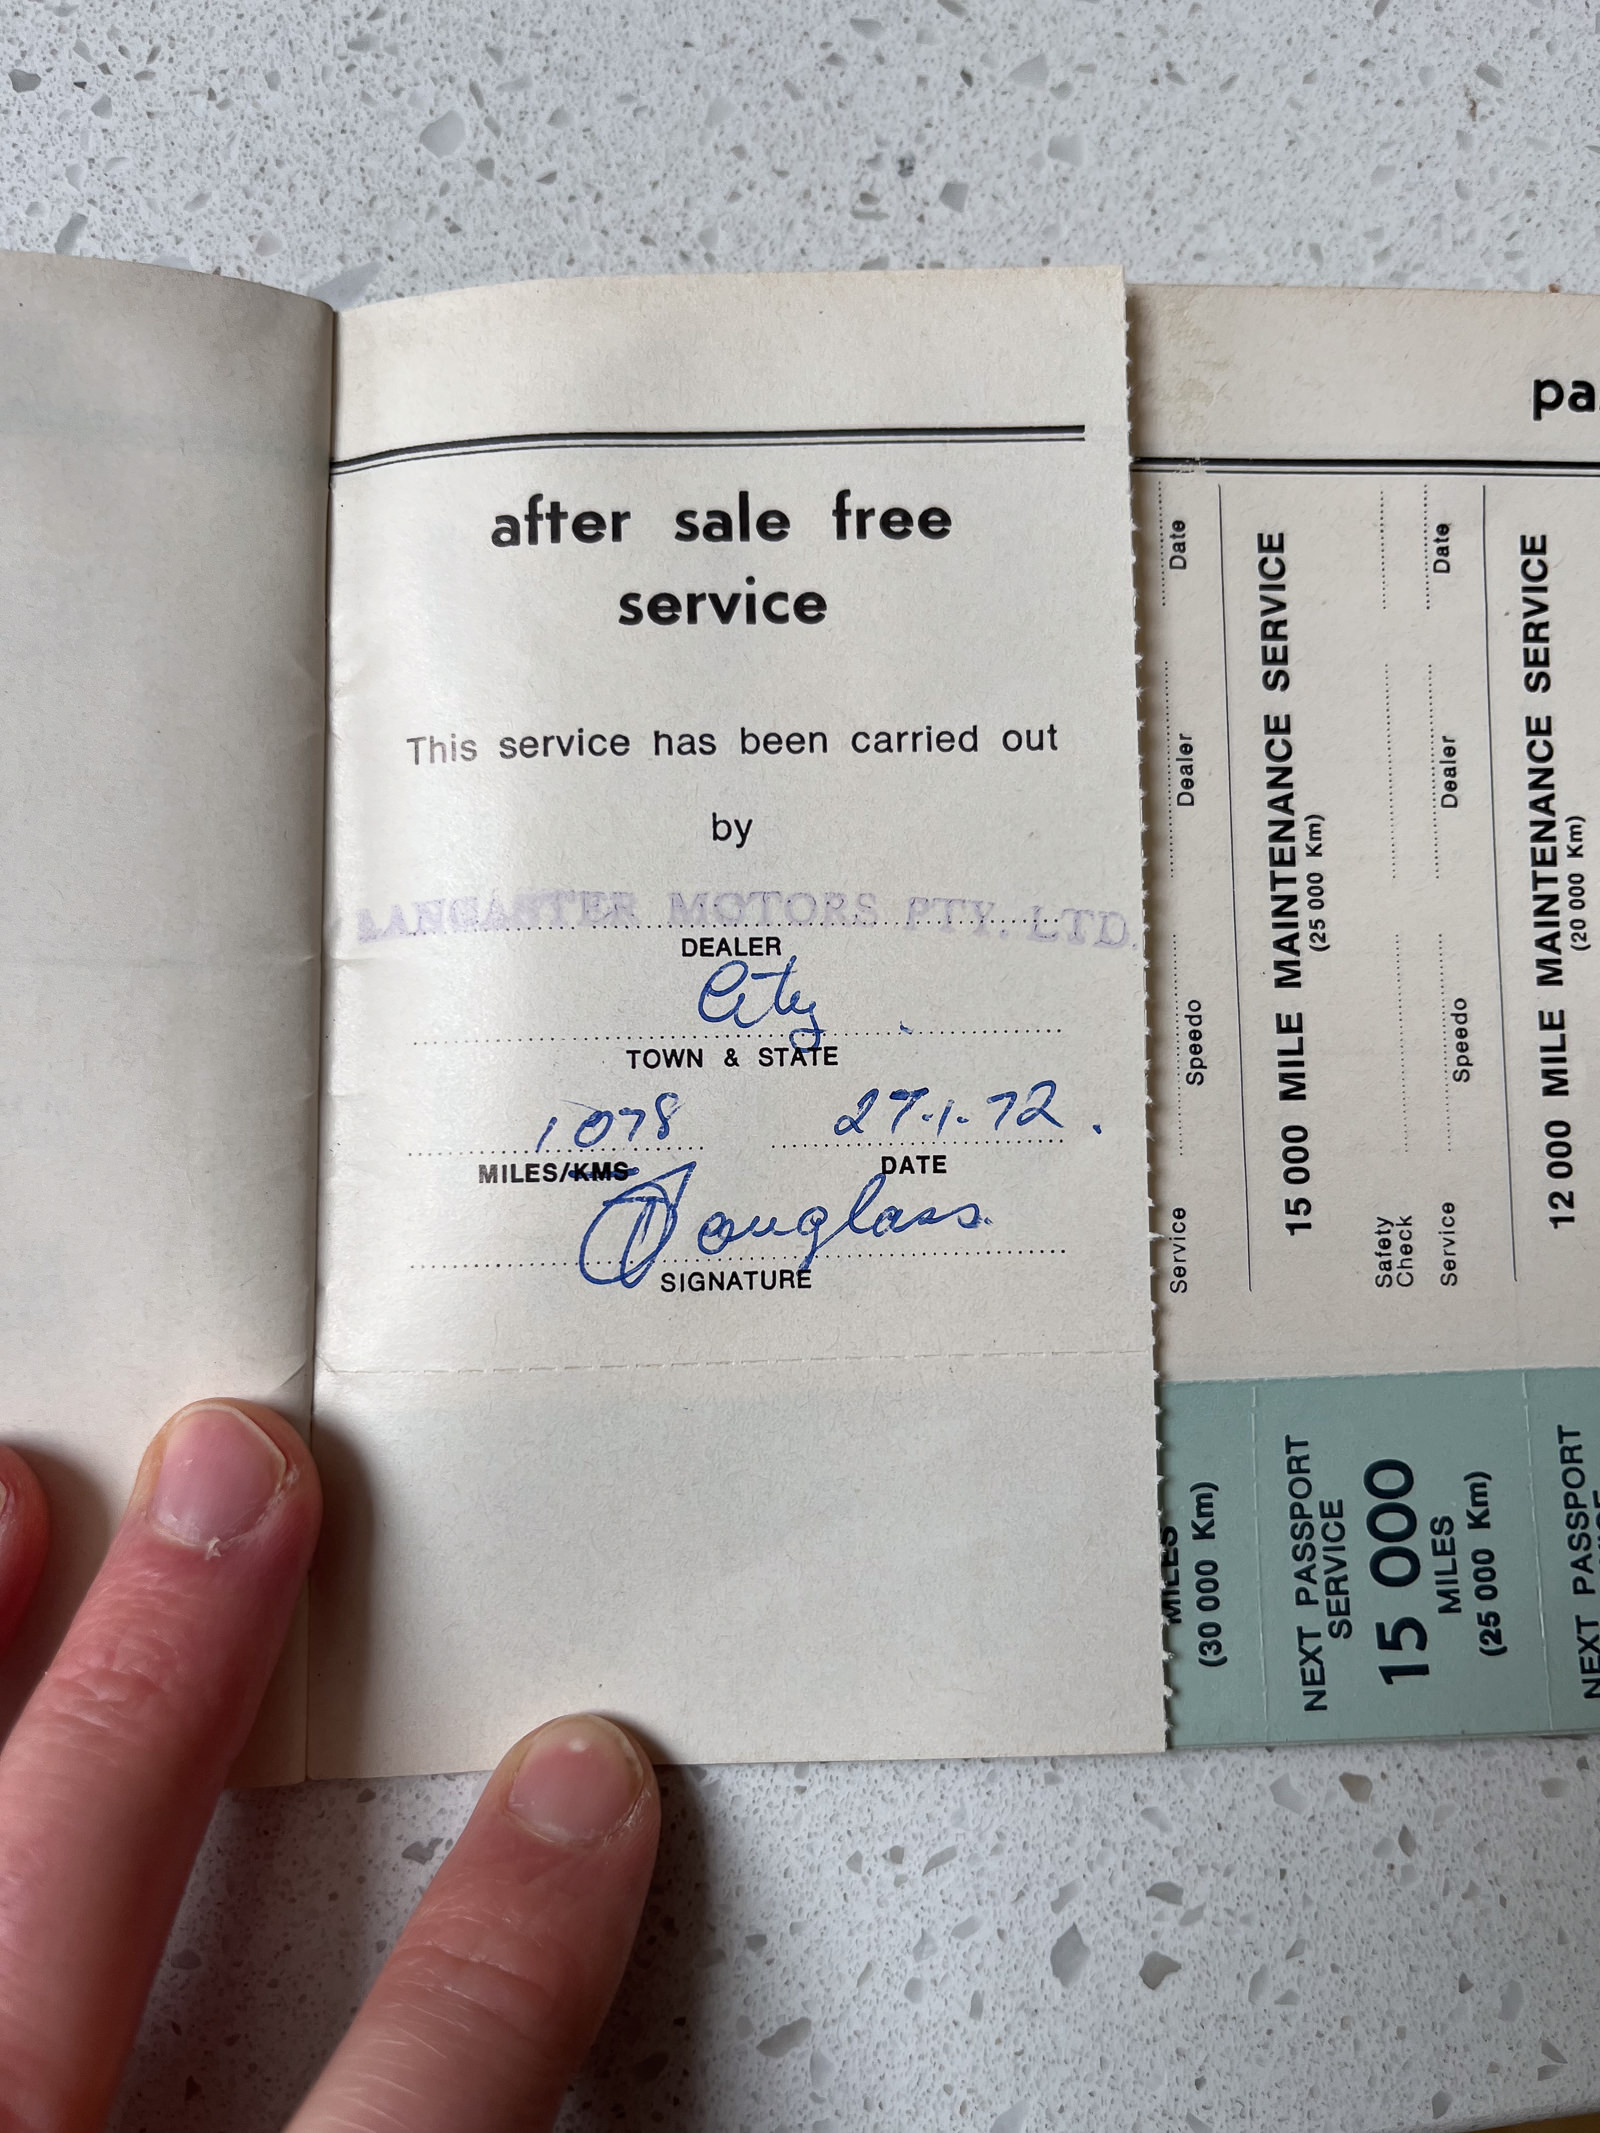 after sale free
service
This service has been carried out
by
LANCASTER MOTORS PTY. LTD.
DEALER
City
TOWN & STATE
1078 27.1.72.
MILES/KMS DATE
Douglass.
SIGNATURE
pa
Service Speedo Dealer Date
15 000 MILE MAINTENANCE SERVICE
(25 000 Km)
Safety
Check
Service Speedo Dealer Date
12 000 MILE MAINTENANCE SERVICE
(20 000 Km)
MILES
(30 000 Km)
NEXT PASSPORT
SERVICE
15 000
MILES
(25 000 Km)
NEXT PASSPORT